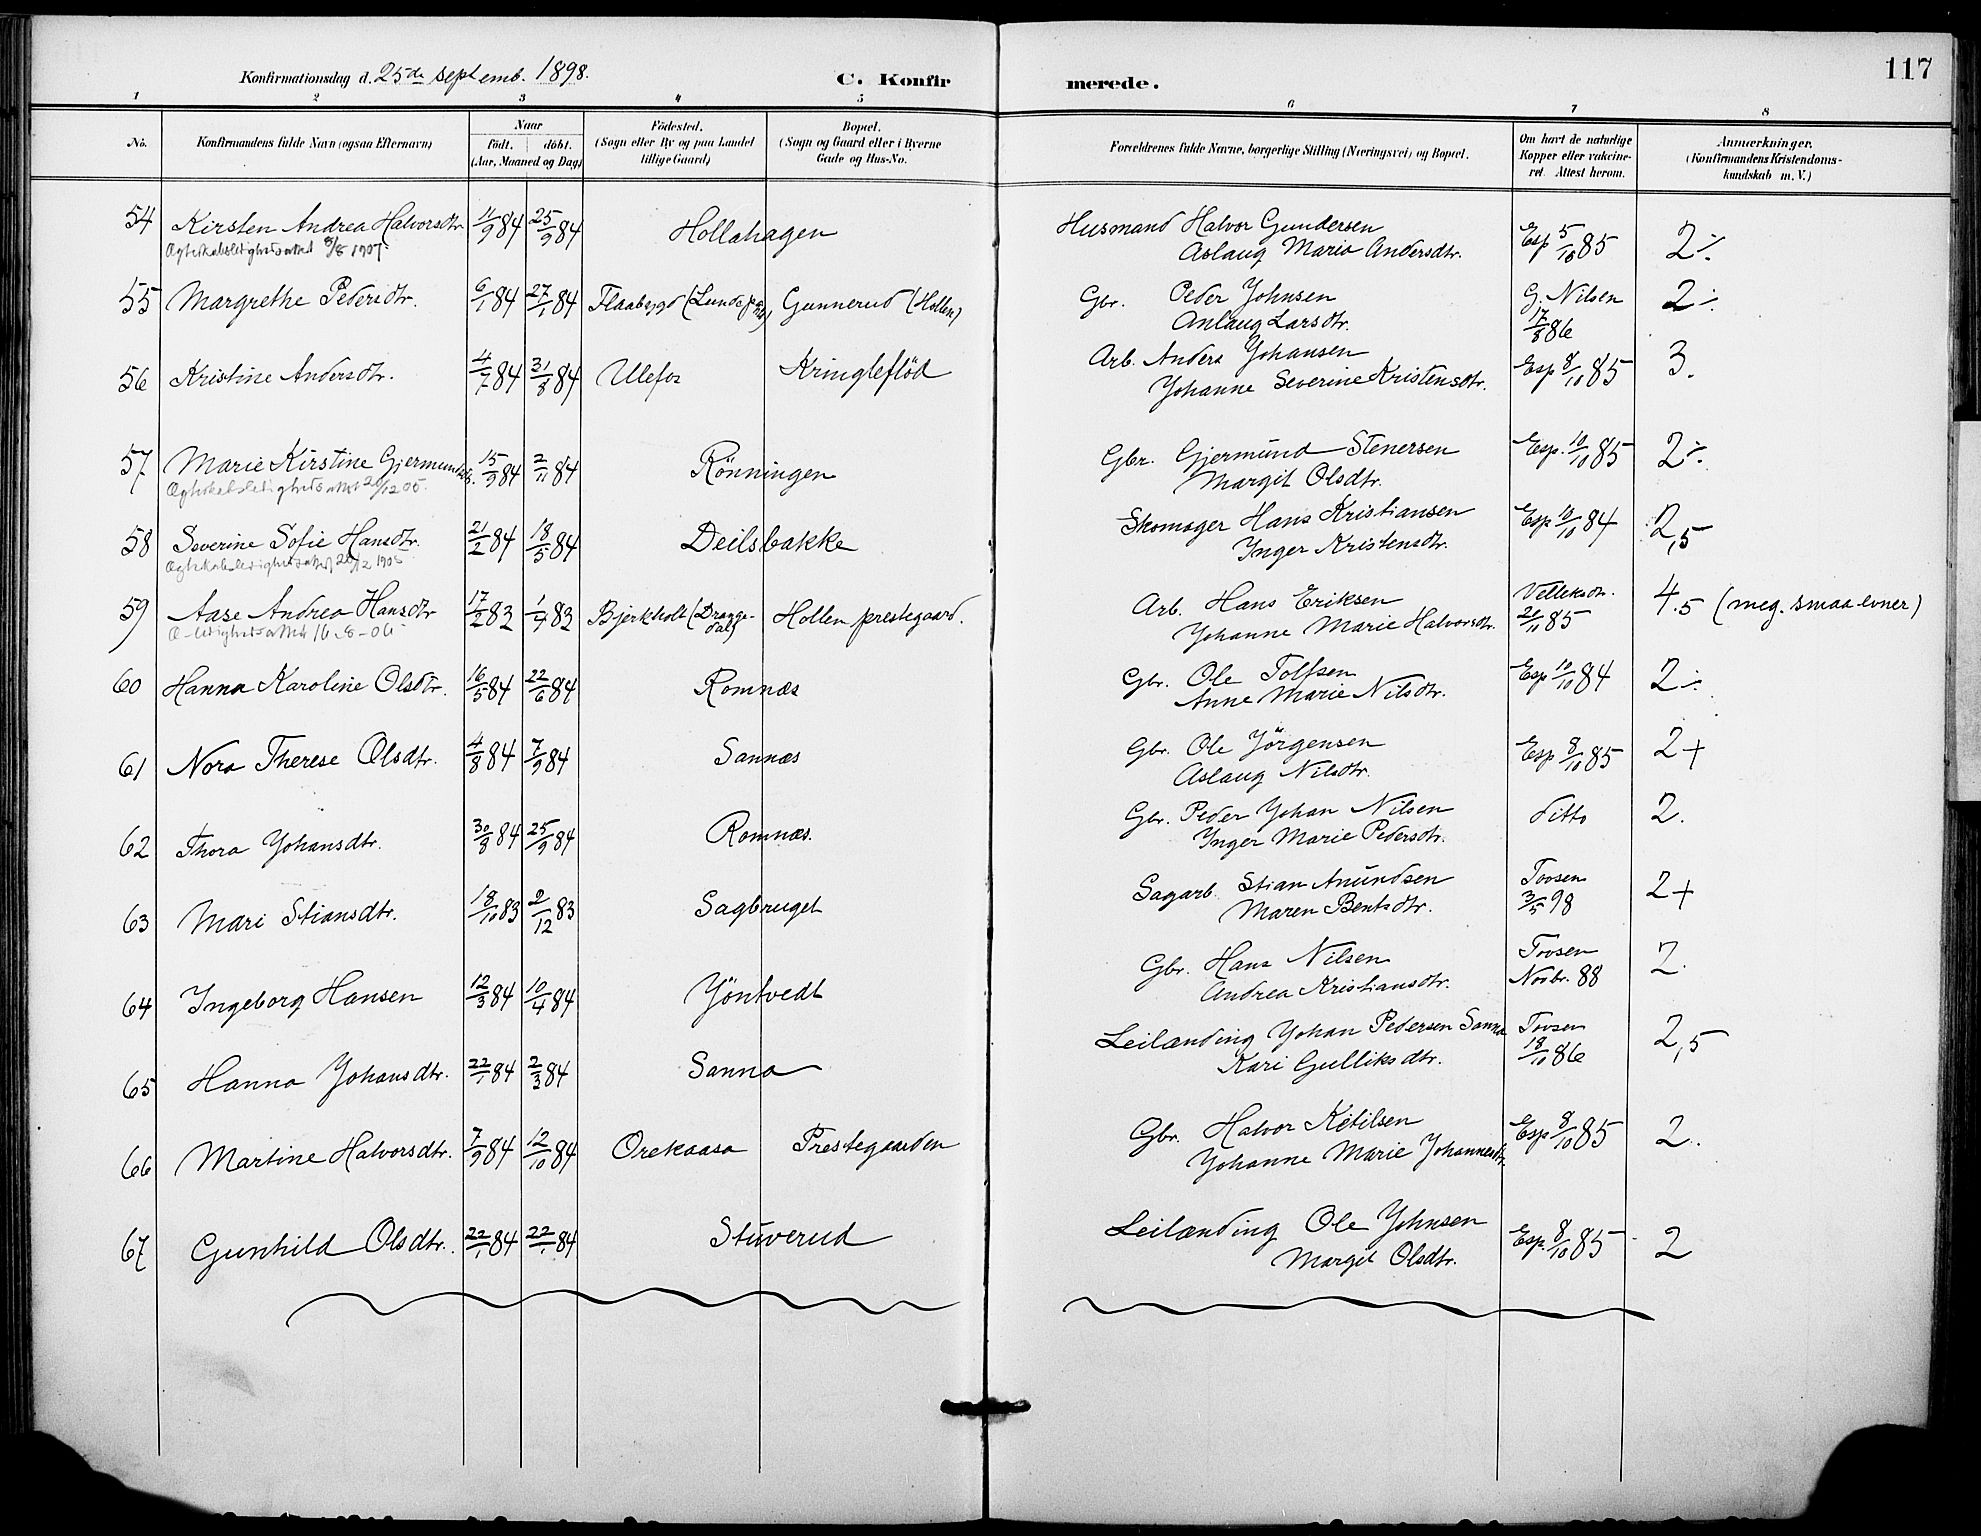 117
Konfirmationsdag d. 25de septemb. 1898.
C. Konfirmerede.
1 2 3 4 5 6 7 8
No. Konfirmandens fulde Navn (ogsaa Efternavn) Naar födt. döbt. (Aar, Maaned og Dag) Födested. (Sogn eller By og paa Landet tillige Gaard) Bopæl. (Sogn og Gaard eller i Byerne Gade og Hus-No. Forældrenes fulde Navne, borgerlige Stilling (Næringsvei) og Bopæl. Om havt de naturlige Kopper eller vakcineret. Attest herom. Anmærkninger. (Konfirmandens Kristendomskundskab m. V.)
54 Kirsten Andrea Halvorsdtr. 11/9 84 25/9 84 Hollahagen Husmand Halvor Gundersen Esp 5/10 85 2÷
Ægteskabsledighedsattest 8/8 1907 Aslaug Maria Andersdtr.
55 Margrethe Pedersdtr. 6/1 84 27/1 84 Flaabygd (Lunde) Gunnerud (Hollen) Gbr. Peder Johnsen G. Nilsen 2÷
Anlaug Larsdtr. 17/8 86
56 Kristine Andersdtr. 4/7 84 31/8 84 Ulefos Kringleflöd Arb. Anders Johansen Esp 8/10 85 3.
Johanne Severine Kristensdtr.
57 Marie Kirstine Gjermundsdtr. 15/9 84 2/11 84 Rönningen Gbr. Gjermund Stenersen Esp. 10/10 85 2÷
Ægteskabsledighedsattest 20/12 05. Margit Olsdtr.
58 Severine Sofie Hansdtr. 21/2 84 18/5 84 Deilsbakke Skomager Hans Kristiansen Esp 10/10 84 2,5
Ægteskabsledighedsattest 20/12 1905 Inger Kristensdtr.
59 Aase Andrea Hansdtr 17/2 83 1/4 83 Bjerkholt (Draggedal) Hollen prestegaard. Arb. Hans Eriksen 21/11 85 4.5 (meg. smaa evner)
Æ-ledighedsattest 16-8-06 Johanne Marie Halvorsdtr.
60 Hanna Karoline Olsdtr. 16/5 84 22/6 84 Romnæs Gbr. Ole Tolfsen Esp 10/10 84 2÷
Anne Marie Nilsdtr.
61 Nora Therese Olsdtr. 4/8 84 7/9 84 Sannæs Gbr. Ole Jörgensen Esp 8/10 85 2+
Aslaug Nilsdtr.
62 Thora Johansdtr. 30/8 84 25/9 84 Romnæs. Gbr. Peder Johan Nilsen ditto 2.
Inger Marie Pedersdtr.
63 Mari Stiansdtr. 18/10 83 2/12 83 Sagbruget Sagarb. Stian Anundsen Tovsen 2+
Maren Bentsdtr. 3/5 98
64 Ingeborg Hansen 12/3 84 10/4 84 Jöntvedt Gbr. Hans Nilsen Tovsen 2.
Andrea Kristiansdtr. Novbr. 88
65 Hanna Johansdtr. 22/1 84 2/3 84 Sanna Leilænding Johan Pedersen Sanna Tovsen 2,5
Kari Gulliksdtr. 18/10 86
66 Martine Halvorsdtr. 7/9 84 12/10 84 Orekaasa Prestegaarden Gbr. Halvor Ketilsen Esp 8/10 85 2.
Johanne Marie Johannesdtr.
67 Gunhild Olsdtr. 22/1 84 22/1 84 Stuverud Leilænding Ole Johnsen Esp. 8/10 85 2
Margit Olsdtr.